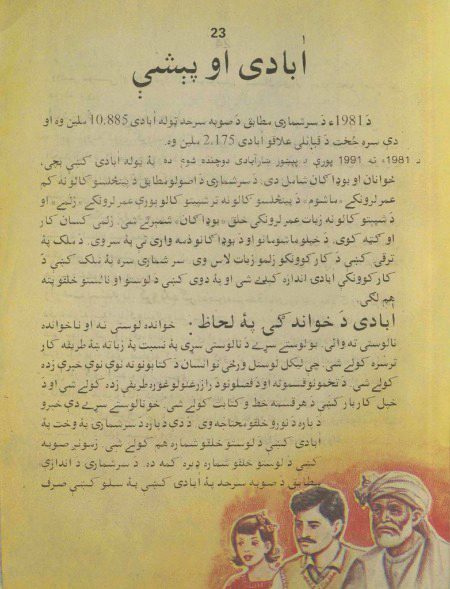 23
اٰبادی او پېشې
دَ 1981ء دَ سرشماری مطابق دَ صوبه سرحد ټوله اٰبادی 10.885 ملین وه او
دې سره جُخت دَ قبائلی علاقو اٰبادی 2.175 ملین وه.
دَ 1981ء نه 1991 پورې دَ پېښور ښار اٰبادی دوچنده شوې ده. پۀ ټوله اٰبادی کښې بچی،
ځوانان او بوډاګان شامل دی. دَ سرشماری دَ اصولو مطابق دَ پینځلسو کالو نه کم
عمر لرونکے «ماشوم» دَ پینځلسو کالو نه تر شپیتو کالو پورې عمر لرونکے «زلمے» او
دَ شپیتو کالو نه زیات عمر لرونکی خلق «بوډاګان» شمېرلے شی. زلمی کسان کار
او ګټه کوی. دَ خپلو ماشومانو او بوډاګانو ذمه واری ئې پۀ سر وی. دَ ملک پۀ
ترقۍ کښې دَ کار کوونکو زلمو زیات لاس وی. سرشماری سره پۀ ملک کښې دَ
کار کوونکې اٰبادی اندازه کېدے شی او پۀ دوی کښې دَ لوستو او نالوستو خلقو پته
هم لګی.
اٰبادی دَ خواندګۍ پۀ لحاظ: خوانده لوستی ته او ناخوانده
نالوستی ته وائی. یو لوستے سړے دَ نالوستی سړی پۀ نسبت پۀ زیاته ښه طریقه کار
ترسره کولے شی. چې لیکل لوستل ورځی نو انسان دَ کتابونو نه نوې نوې خبرې زده
کولے شی. دَ تخمونو قسمونه او دَ فصلونو دَ زرغونولو غوره طریقې زده کولے شی او دَ
خپل کاربار کښې دَ هر قسمه خط و کتابت کولے شی. خو نالوستے سړے دې خبرو
دَپاره دَ نورو خلقو محتاجه وی. دَ دې دَپاره دَ سرشماری پۀ وخت پۀ
اٰبادی کښې دَ لوستو خلقو شماره هم کولے شی. زمونږ صوبه
کښې دَ لوستو خلقو شماره ډېره کمه ده. دَ سرشماری دَ اندازې
مطابق دَ صوبه سرحد پۀ اٰبادی کښې پۀ سلو کښې صرف